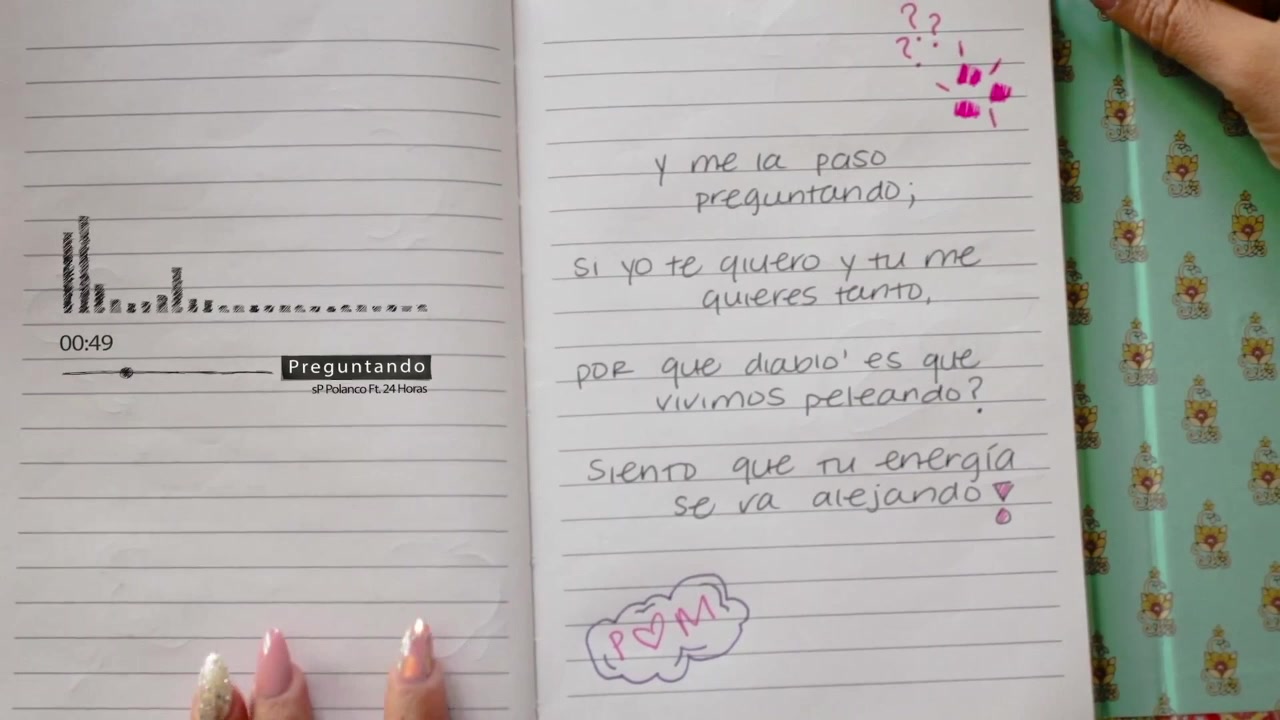 00:49
Preguntando
sP Polanco Ft. 24 Horas
? ?
?
y me la paso
preguntando;
si yo te qiuero y tu me
quieres tanto,
por que diablo' es que
vivimos peleando?
siento que tu energía
se va alejando!
P♡M